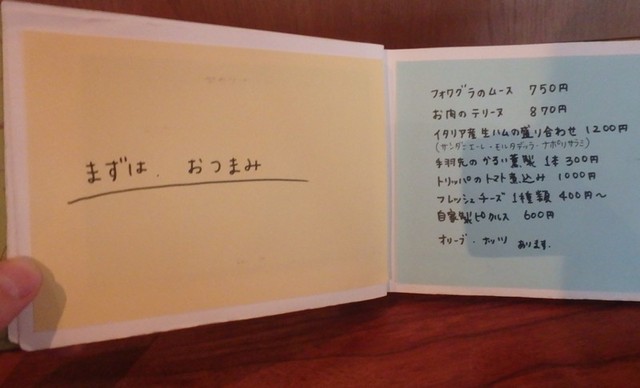 まずは. おつまみ
フォワグラのムース 750円
お肉のテリーヌ 870円
イタリア産生ハムの盛り合わせ 1200円
(サンダニエーレ・モルタデッラ・ナポリサラミ)
手羽先のかるい薫製 1本 300円
トリッパのトマト煮込み 1000円
フレッシュチーズ 1種類 400円〜
自家製ピクルス 600円
オリーブ・ナッツ あります.